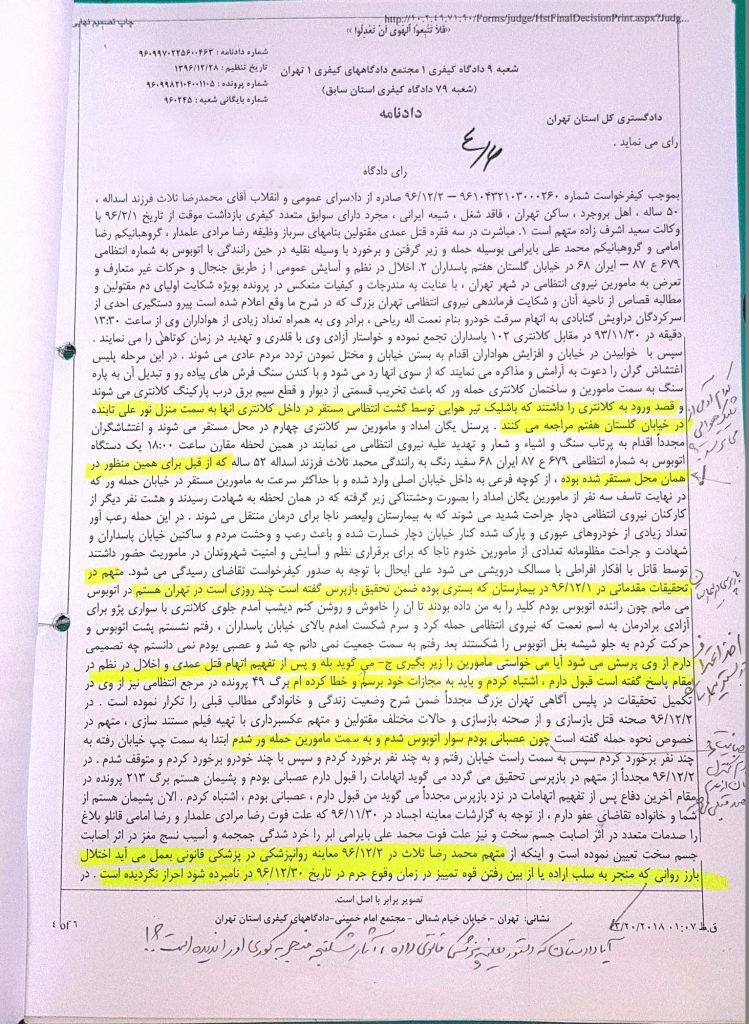 چاپ تصمیم نهایی
http://10.2.49.71:90/Forms/judge/HstFinalDecisionPrint.aspx?Judg...
«فَلا تَتَّبِعوُا اَلهَوى اَنْ تَعْدِلُوا»
شماره دادنامه : 9609970225600463
تاریخ تنظیم : 1396/12/28
شماره پرونده : 9609982104001105
شماره بایگانی شعبه : 960245
شعبه 9 دادگاه کیفری 1 مجتمع دادگاههای کیفری 1 تهران
(شعبه 79 دادگاه کیفری استان سابق)
دادنامه
دادگستری کل استان تهران
رای می نماید .
رای دادگاه
بموجب کیفرخواست شماره 9610432103000260 – 96/12/2 صادره از دادسرای عمومی و انقلاب آقای محمدرضا ثلاث فرزند اسداله ،
50 ساله ، اهل بروجرد ، ساکن تهران ، فاقد شغل ، شیعه ایرانی ، مجرد دارای سوابق متعدد کیفری بازداشت موقت از تاریخ 96/2/1 با
وکالت سعید اشرف زاده متهم است 1. مباشرت در سه فقره قتل عمدی مقتولین بنامهای سرباز وظیفه رضا مرادی علمدار ، گروهبانیکم رضا
امامی و گروهبانیکم محمد علی بایرامی بوسیله حمله و زیر گرفتن و برخورد با وسیله نقلیه در حین رانندگی با اتوبوس به شماره انتظامی
679 ع 87 – ایران 68 در خیابان گلستان هفتم پاسداران 2. اخلال در نظم و آسایش عمومی ا ز طریق جنجال و حرکات غیر متعارف و
تعرض به مامورین نیروی انتظامی در شهر تهران ، با عنایت به مندرجات و کیفیات منعکس در پرونده بویژه شکایت اولیای دم مقتولین و
مطالبه قصاص از ناحیه آنان و شکایت فرماندهی نیروی انتظامی تهران بزرگ که در شرح ما وقع اعلام شده است پیرو دستگیری احدی از
سرکردگان دراویش گنابادی به اتهام سرقت خودرو بنام نعمت اله ریاحی ، برادر وی به همراه تعداد زیادی از هواداران وی از ساعت 13:30
دقیقه در 93/11/30 در مقابل کلانتری 102 پاسداران تجمع نموده و خواستار آزادی وی با قلدری و تهدید در زمان کوتاهی را می نمایند .
سپس با خوابیدن در خیابان و افزایش هواداران اقدام به بستن خیابان و مختل نمودن تردد مردم عادی می شوند . در این مرحله پلیس
اغتشاش گران را دعوت به آرامش و مذاکره می نمایند که از سوی انها رد می شود و با کندن سنگ فرش های پیاده رو و تبدیل آن به پاره
سنگ به سمت مامورین و ساختمان کلانتری حمله ور که باعث تخریب قسمتی از دیوار و قطع سیم برق درب پارکینگ کلانتری می شوند
و قصد ورود به کلانتری را داشتند که باشلیک تیر هوایی توسط گشت انتظامی مستقر در داخل کلانتری انها به سمت منزل نور علی تابنده
در خیابان گلستان هفتم مراجعه می کنند . پرسنل یگان امداد و مامورین سر کلانتری چهارم در محل مستقر می شوند و اغتشاشگران
مجدداً اقدام به پرتاب سنگ و اشیاء و شعار و تهدید علیه نیروی انتظامی می نمایند در همین لحظه مقارن ساعت 18:00 یک دستگاه
اتوبوس به شماره انتظامی 679 ع 87 ایران 68 سفید رنگ به رانندگی محمد ثلاث فرزند اسداله 52 ساله که از قبل برای همین منظور در
همان محل مستقر شده بوده ، از کوچه فرعی به داخل خیابان اصلی وارد شده و با حداکثر سرعت به مامورین مستقر در خیابان حمله ور که
در نهایت تاسف سه نفر از مامورین یگان امداد را بصورت وحشتناکی زیر گرفته که در همان لحظه به شهادت رسیدند و هشت نفر دیگر از
کارکنان نیروی انتظامی دچار جراحت شدید می شوند که به بیمارستان ولیعصر ناجا برای درمان منتقل می شوند . در این حمله رعب آور
تعداد زیادی از خودروهای عبوری و پارک شده کنار خیابان دچار خسارت شده و باعث رعب و وحشت مردم و ساکنین خیابان پاسداران و
شهادت و جراحت مظلومانه تعدادی از مامورین خدوم ناجا که برای برقراری نظم و آسایش و امنیت شهروندان در ماموریت حضور داشتند
توسط قاتل با افکار افراطی با مسالک درویشی می شود علی ایحال با توجه به صدور کیفرخواست تقاضای رسیدگی می شود. متهم در
تحقیقات مقدماتی در 96/12/1 در بیمارستان که بستری بوده ضمن تحقیق بازپرس گفته است چند روزی است در تهران هستم در اتوبوس
می مانم چون راننده اتوبوس بودم کلید را به من داده بودند تا ان را خاموش و روشن کنم دیشب آمدم جلوی کلانتری با سواری پژو برای
آزادی برادرمان به اسم نعمت که نیروی انتظامی حمله کرد و سرم شکست امدم بالای خیابان پاسداران ، رفتم نشستم پشت اتوبوس و
حرکت کردم به جلو شیشه بغل اتوبوس را شکستند بعد رفتم به سمت جمعیت نمی دانم چه شد و عصبی بودم نمی دانستم چه تصمیمی
دارم از وی پرسش می شود آیا می خواستی مامورین را زیر بگیری ج- می گوید بله و پس از تفهیم اتهام قتل عمدی و اخلال در نظم در
مقام پاسخ گفته است قبول دارم ، اشتباه کردم و باید به مجازات خود برسم و خطا کرده ام برگ 49 پرونده در مرجع انتظامی نیز از وی در
تکمیل تحقیقات در پلیس آگاهی تهران بزرگ مجدداً ضمن شرح وضعیت زندگی و خانوادگی مطالب قبلی را تکرار نموده است . در
96/12/2 صحنه قتل بازسازی و از صحنه بازسازی و حالات مختلف مقتولین و متهم عکسبرداری با تهیه فیلم مستند سازی ، متهم در
خصوص نحوه حمله گفته است چون عصبانی بودم سوار اتوبوس شدم و به سمت مامورین حمله ور شدم ابتدا به سمت چپ خیابان رفته به
چند نفر برخورد کردم سپس به سمت راست خیابان رفتم و به چند نفر برخورد کردم و سپس با چند خودرو برخورد کردم و متوقف شدم . در
96/12/2 مجدداً از متهم در بازپرسی تحقیق می گردد می گوید اتهامات را قبول دارم عصبانی بودم و پشیمان هستم برگ 213 پرونده در
مقام آخرین دفاع پس از تفهیم اتهامات در نزد بازپرس مجدداً می گوید من قبول دارم ، عصبانی بودم ، اشتباه کردم . الان پشیمان هستم از
شما و خانواده تقاضای عفو دارم ، از توجه به گزارشات معاینه اجساد در 96/11/30 که علت فوت رضا مرادی علمدار و رضا امامی قانلو بلاغ
را صدمات متعدد در اثر اصابت جسم سخت و نیز علت فوت محمد علی بایرامی ابر را خرد شدگی جمجمه و آسیب نسج مغز در اثر اصابت
جسم سخت تعیین نموده است و اینکه از متهم محمد رضا ثلاث در 96/12/2 معاینه روانپزشکی در پزشکی قانونی بعمل می آید اختلال
بارز روانی که منجر به سلب اراده یا از بین رفتن قوه تمییز در زمان وقوع جرم در تاریخ 96/12/30 در نامبرده شود احراز نگردیده است . در
تصویر برابر با اصل است.
نشانی: تهران - خیابان خیام شمالی - مجتمع امام خمینی-دادگاههای کیفری استان تهران
4 of 6
3/20/2018 01:07 ق.ظ